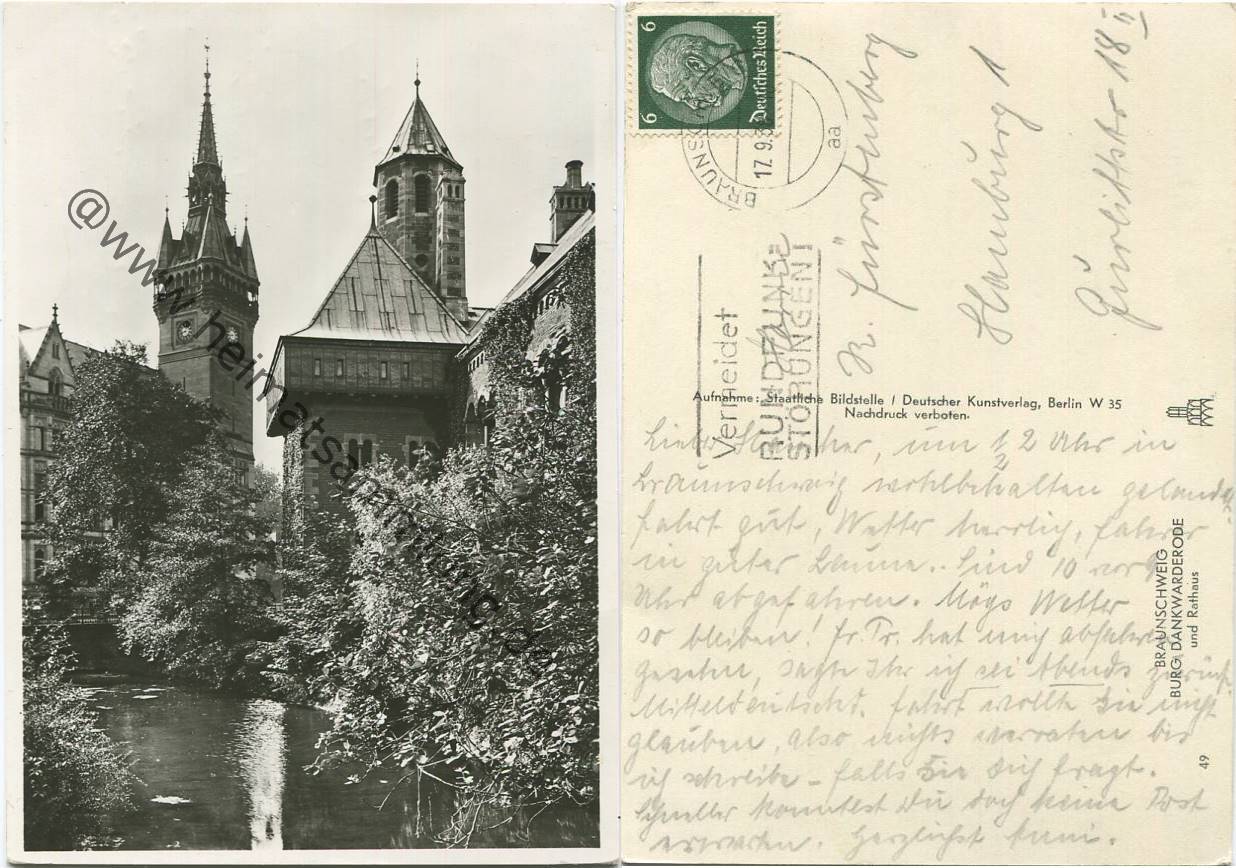 @www.heimatsammlung.de
6 6
Deutsches Reich
BRAUNSCHWEIG
17.9.3
aa
Vermeidet
RUNDFUNK-
STÖRUNGEN!
Fürstenberg
Hamburg 1
Gurlittstr 18 II
Aufnahme: Staatliche Bildstelle / Deutscher Kunstverlag, Berlin W 35
Nachdruck verboten.
um 1/2 2 Uhr in
Braunschweig wohlbehalten gelandet
Fahrt gut, Wetter herrlich, Fahrer
in guter Laune. Sind 10 vor 9
Uhr abgefahren. Mögs Wetter
so bleiben! Fr. Tr. hat mich abfahren
gesehn, sagte Ihr ich sei Abends zurück.
Mitteldeutschd. Fahrt wollte Sie nicht
glauben, also nichts verraten bis
ich schreibe - falls Sie Dich fragt.
Schneller konntest Du doch keine Post
erwarten. Herzlichst Anni.
BRAUNSCHWEIG
BURG DANKWARDERODE
und Rathaus
49